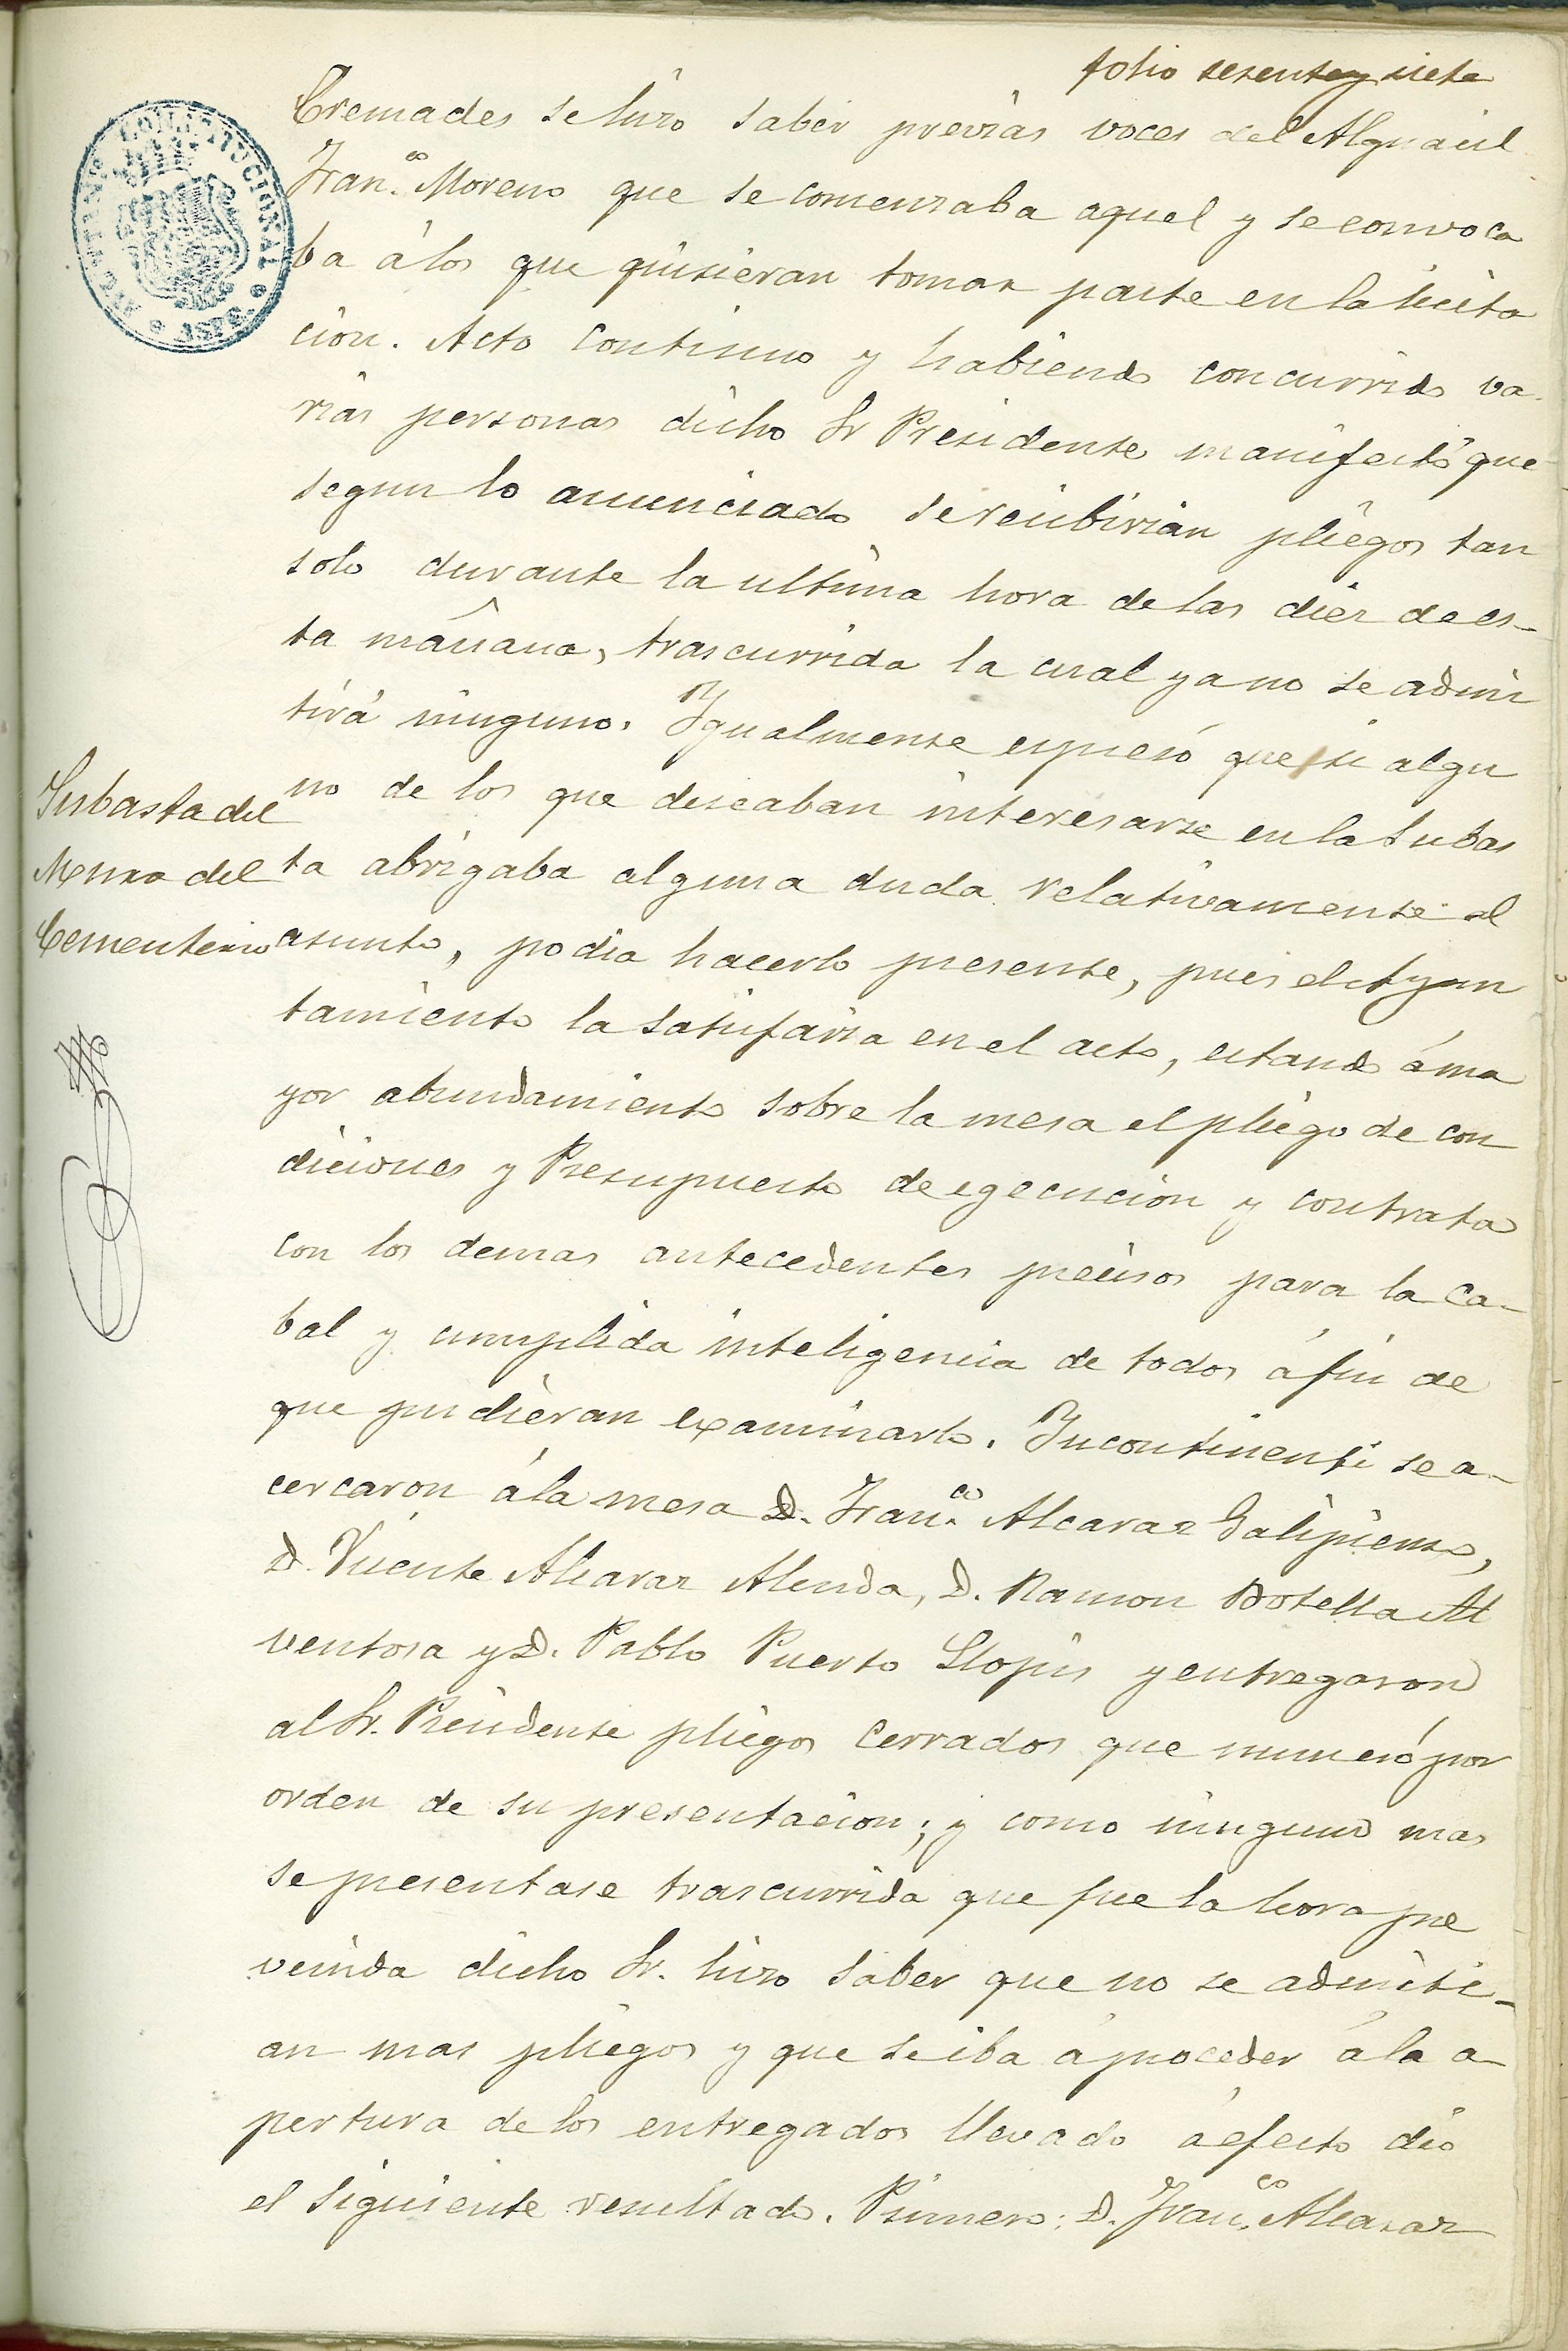 folio sesenta y siete
AYUNTAMIENTO CONSTITUCIONAL
ASPE
Cremades se hizo saber previas voces del Alguacil
Fran.co Moreno que se comenzaba aquel y se convoca
ba á los que quisieran tomar parte en la licita
cion. Acto continuo y habiendo concurrido va-
rias personas dicho Sr Presidente manifestó que
segun lo anunciado se recibirian pliegos tan
solo durante la ultima hora de las diez de es-
ta mañana, trascurrida la cual ya no se admi
tirá ninguno. Igualmente espresó que si algu
no de los que deseaban interesarse en la subas
ta abrigaba alguna duda relativamente al
asunto, podia hacerlo presente, pues el Ayun
tamiento la satisfaria en el acto, estando á ma
yor abundamiento sobre la mesa el pliego de con
diciones y Presupuesto de egecucion y contrata
con los demas antecedentes precisos para la ca-
bal y cumplida inteligencia de todos á fin de
que pudieran examinarlo. Incontinenti se a-
cercaron á la mesa D. Fran.co Alcaraz Galipienso,
D. Vicente Alcaraz Alenda, D. Ramon Botella Al
ventosa y D. Pablo Puerto Llopis y entregaron
al Sr. Presidente pliegos cerrados que numeró por
orden de su presentacion; y como ninguno mas
se presentase trascurrida que fue la hora pre
venida dicho Sr. hizo saber que no se admiti-
an mas pliegos y que se iba á proceder á la a-
pertura de los entregados llevado á efecto dio
el siguiente resultado. Primero: D. Fran.co Alcaraz
Subasta del
Muro del
Cementerio